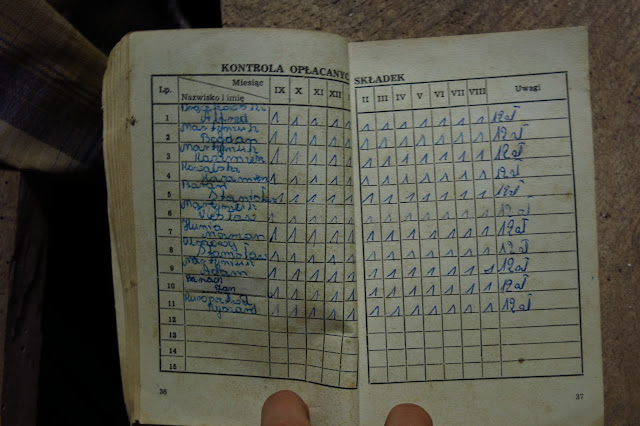 KONTROLA OPŁACANYCH SKŁADEK
Lp. Miesiąc Nazwisko i imię IX X XI XII II III IV V VI VII VIII Uwagi
1 Alfred 1 1 1 1 1 1 1 1 1 1 1 12 zł
2 Martyniuk Bogdan 1 1 1 1 1 1 1 1 1 1 1 12 zł
3 Martyniuk Kazimierz 1 1 1 1 1 1 1 1 1 1 1 12 zł
4 Kowalski Kazimierz 1 1 1 1 1 1 1 1 1 1 1 12 zł
5 Baran Stanisław 1 1 1 1 1 1 1 1 1 1 1 12 zł
6 Martyniuk Wiesław 1 1 1 1 1 1 1 1 1 1 1 12 zł
7 Roman 1 1 1 1 1 1 1 1 1 1 1 12 zł
8 Stanisław 1 1 1 1 1 1 1 1 1 1 1 12 zł
9 Martyniuk Adam 1 1 1 1 1 1 1 1 1 1 1 12 zł
10 Jan 1 1 1 1 1 1 1 1 1 1 1 12 zł
11 Ryszard 1 1 1 1 1 1 1 1 1 1 1 12 zł
12
13
14
15
36 37